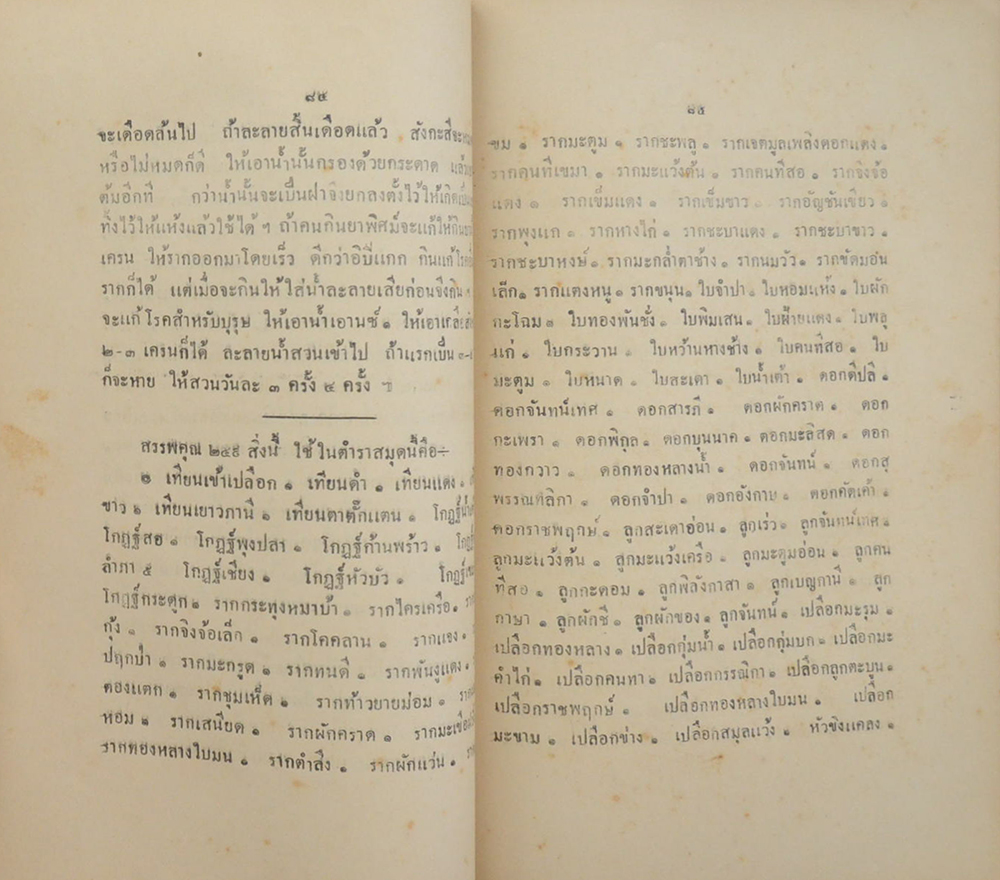 ๘๔
จะเดือดล้นไป ถ้าละลายสิ้นเดือดแล้ว สังกะสีจะหมด
หรือไม่หมดก็ดี ให้เอาน้ำนั้นกรองด้วยกระดาด แล้ว
ต้มอีกที กว่าน้ำนั้นจะเปื่นฝาจึงยกลงตั้งไว้ให้เกิดเปน
ทิ้งไว้ให้แห้งแล้วใช้ได้ ฯ ถ้าคนกินยาพิศม์จะแก้ให้กิน
เครน ให้รากออกมาโดยเร็ว ดีกว่าอิปิแกก กินแก้โรค
รากก็ได้ แต่เมื่อจะกินให้ใส่น้ำละลายเสียก่อนจึงกิน ฯ
จะแก้โรคสำหรับบุรุษ ให้เอาน้ำเอานซ์ ๑ ให้เอาเกลือ
๒-๓ เครนก็ได้ ละลายน้ำสวนเข้าไป ถ้าแรกเป็น
ก็จะหาย ให้สวนวันละ ๓ ครั้ง ๔ ครั้ง ฯ
สรรพคุณ ๒๕๙ สิ่งนี้ ใช้ในตำราสมุดนี้คือ÷
๑ เทียนเข้าเปลือก ๑ เทียนดำ ๑ เทียนแดง ๑
ขาว ๑ เทียนเยาวภานี ๑ เทียนตาตั๊กแตน ๑ โกฏฐ์น้ำ
โกฏฐ์สอ ๑ โกฏฐ์พุงปลา ๑ โกฏฐ์ก้านพร้าว ๑ โกฏฐ์
ลำภา ๕ โกฏฐ์เชียง ๑ โกฏฐ์หัวบัว ๑ โกฏฐ์
โกฏฐ์กระดูก ๑ รากกระทุงหมาบ้า ๑ รากไคร้เครือ ๑
กุ้ง ๑ รากจิงจ้อเล็ก ๑ รากโคคลาน ๑ รากแจง ๑
ปฤกป่า ๑ รากมะกรูด ๑ รากทนดี ๑ รากพันงูแดง ๑
คองแตก ๑ รากชุมเห็ด ๑ รากท้าวยายม่อม ๑
หอม ๑ รากเสนียด ๑ รากผักคราด ๑ รากมะเขือ
รากทองหลางใบมน ๑ รากตำลึง ๑ รากผักแว่น ๑
๘๕
ขม ๑ รากมะตูม ๑ รากชะพลู ๑ รากเจตมูลเพลิงดอกแดง ๑
รากคนทีเขมา ๑ รากมะแว้งต้น ๑ รากคนทีสอ ๑ รากจิงจ้อ
แดง ๑ รากเข็มแดง ๑ รากเข็มขาว ๑ รากอัญชันเขียว ๑
รากพุงแก ๑ รากหางไก่ ๑ รากชะบาแดง ๑ รากชะบาขาว ๑
รากชะบาหงษ์ ๑ รากมะกล่ำตาช้าง ๑ รากนมวัว ๑ รากขัดมอัน
เล็ก ๑ รากแตงหนู ๑ รากขนุน ๑ ใบจำปา ๑ ใบหอมแห้ง ๑ ใบผัก
กะโฉม ๑ ใบทองพันชั่ง ๑ ใบพิมเสน ๑ ใบฝ้ายแดง ๑ ใบพลู
แก่ ๑ ใบกระวาน ๑ ใบหว้านหางช้าง ๑ ใบคนทีสอ ๑ ใบ
มะตูม ๑ ใบหนาด ๑ ใบสะเดา ๑ ใบน้ำเต้า ๑ ดอกดีปลี ๑
ดอกจันทน์เทศ ๑ ดอกสารภี ๑ ดอกผักคราด ๑ ดอก
กะเพรา ๑ ดอกพิกุล ๑ ดอกบุนนาค ๑ ดอกมะลิสด ๑ ดอก
ทองกวาว ๑ ดอกทองหลางน้ำ ๑ ดอกจันทน์ ๑ ดอกสุ
พรรณศลิกา ๑ ดอกจำปา ๑ ดอกอังกาบ ๑ ดอกคัดเค้า ๑
ดอกราชพฤกษ์ ๑ ลูกสะเดาอ่อน ๑ ลูกเร่ว ๑ ลูกจันทน์เทศ ๑
ลูกมะแว้งต้น ๑ ลูกมะแว้งเครือ ๑ ลูกมะตูมอ่อน ๑ ลูกคน
ทีสอ ๑ ลูกกะดอม ๑ ลูกพิลังกาสา ๑ ลูกเบญกานี ๑ ลูก
กาษา ๑ ลูกผักชี ๑ ลูกผักของ ๑ ลูกจันทน์ ๑ เปลือกมะรุม ๑
เปลือกทองหลาง ๑ เปลือกกุ่มน้ำ ๑ เปลือกกุ่มบก ๑ เปลือกมะ
คำไก่ ๑ เปลือกคนทา ๑ เปลือกกรรณิกา ๑ เปลือกลูกตะบูน ๑
เปลือกราชพฤกษ์ ๑ เปลือกทองหลางใบมน ๑ เปลือก
มะขาม ๑ เปลือกข่าง ๑ เปลือกสมุลแว้ง ๑ หัวขิงแคลง ๑